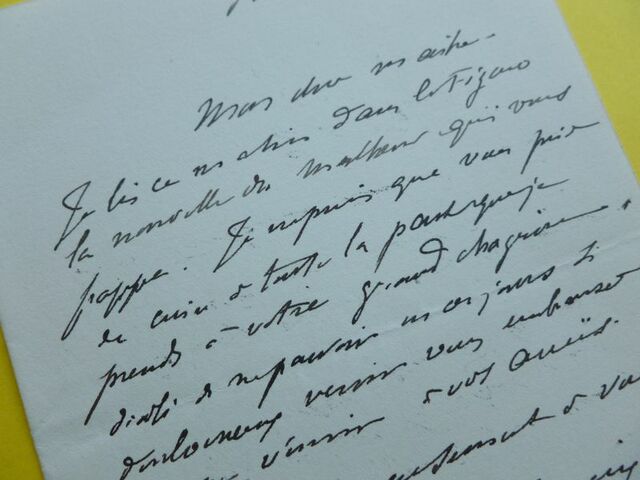 Mon cher maître.
Je lis ce matin dans le Figaro
la nouvelle du malheur qui vous
frappe. Je ne puis que vous prier
de croire à toute la part que je
prends à votre grand chagrin.
désolé de ne pouvoir ces jours si
douloureux venir vous embrasser
venir à vos amis.
à vous